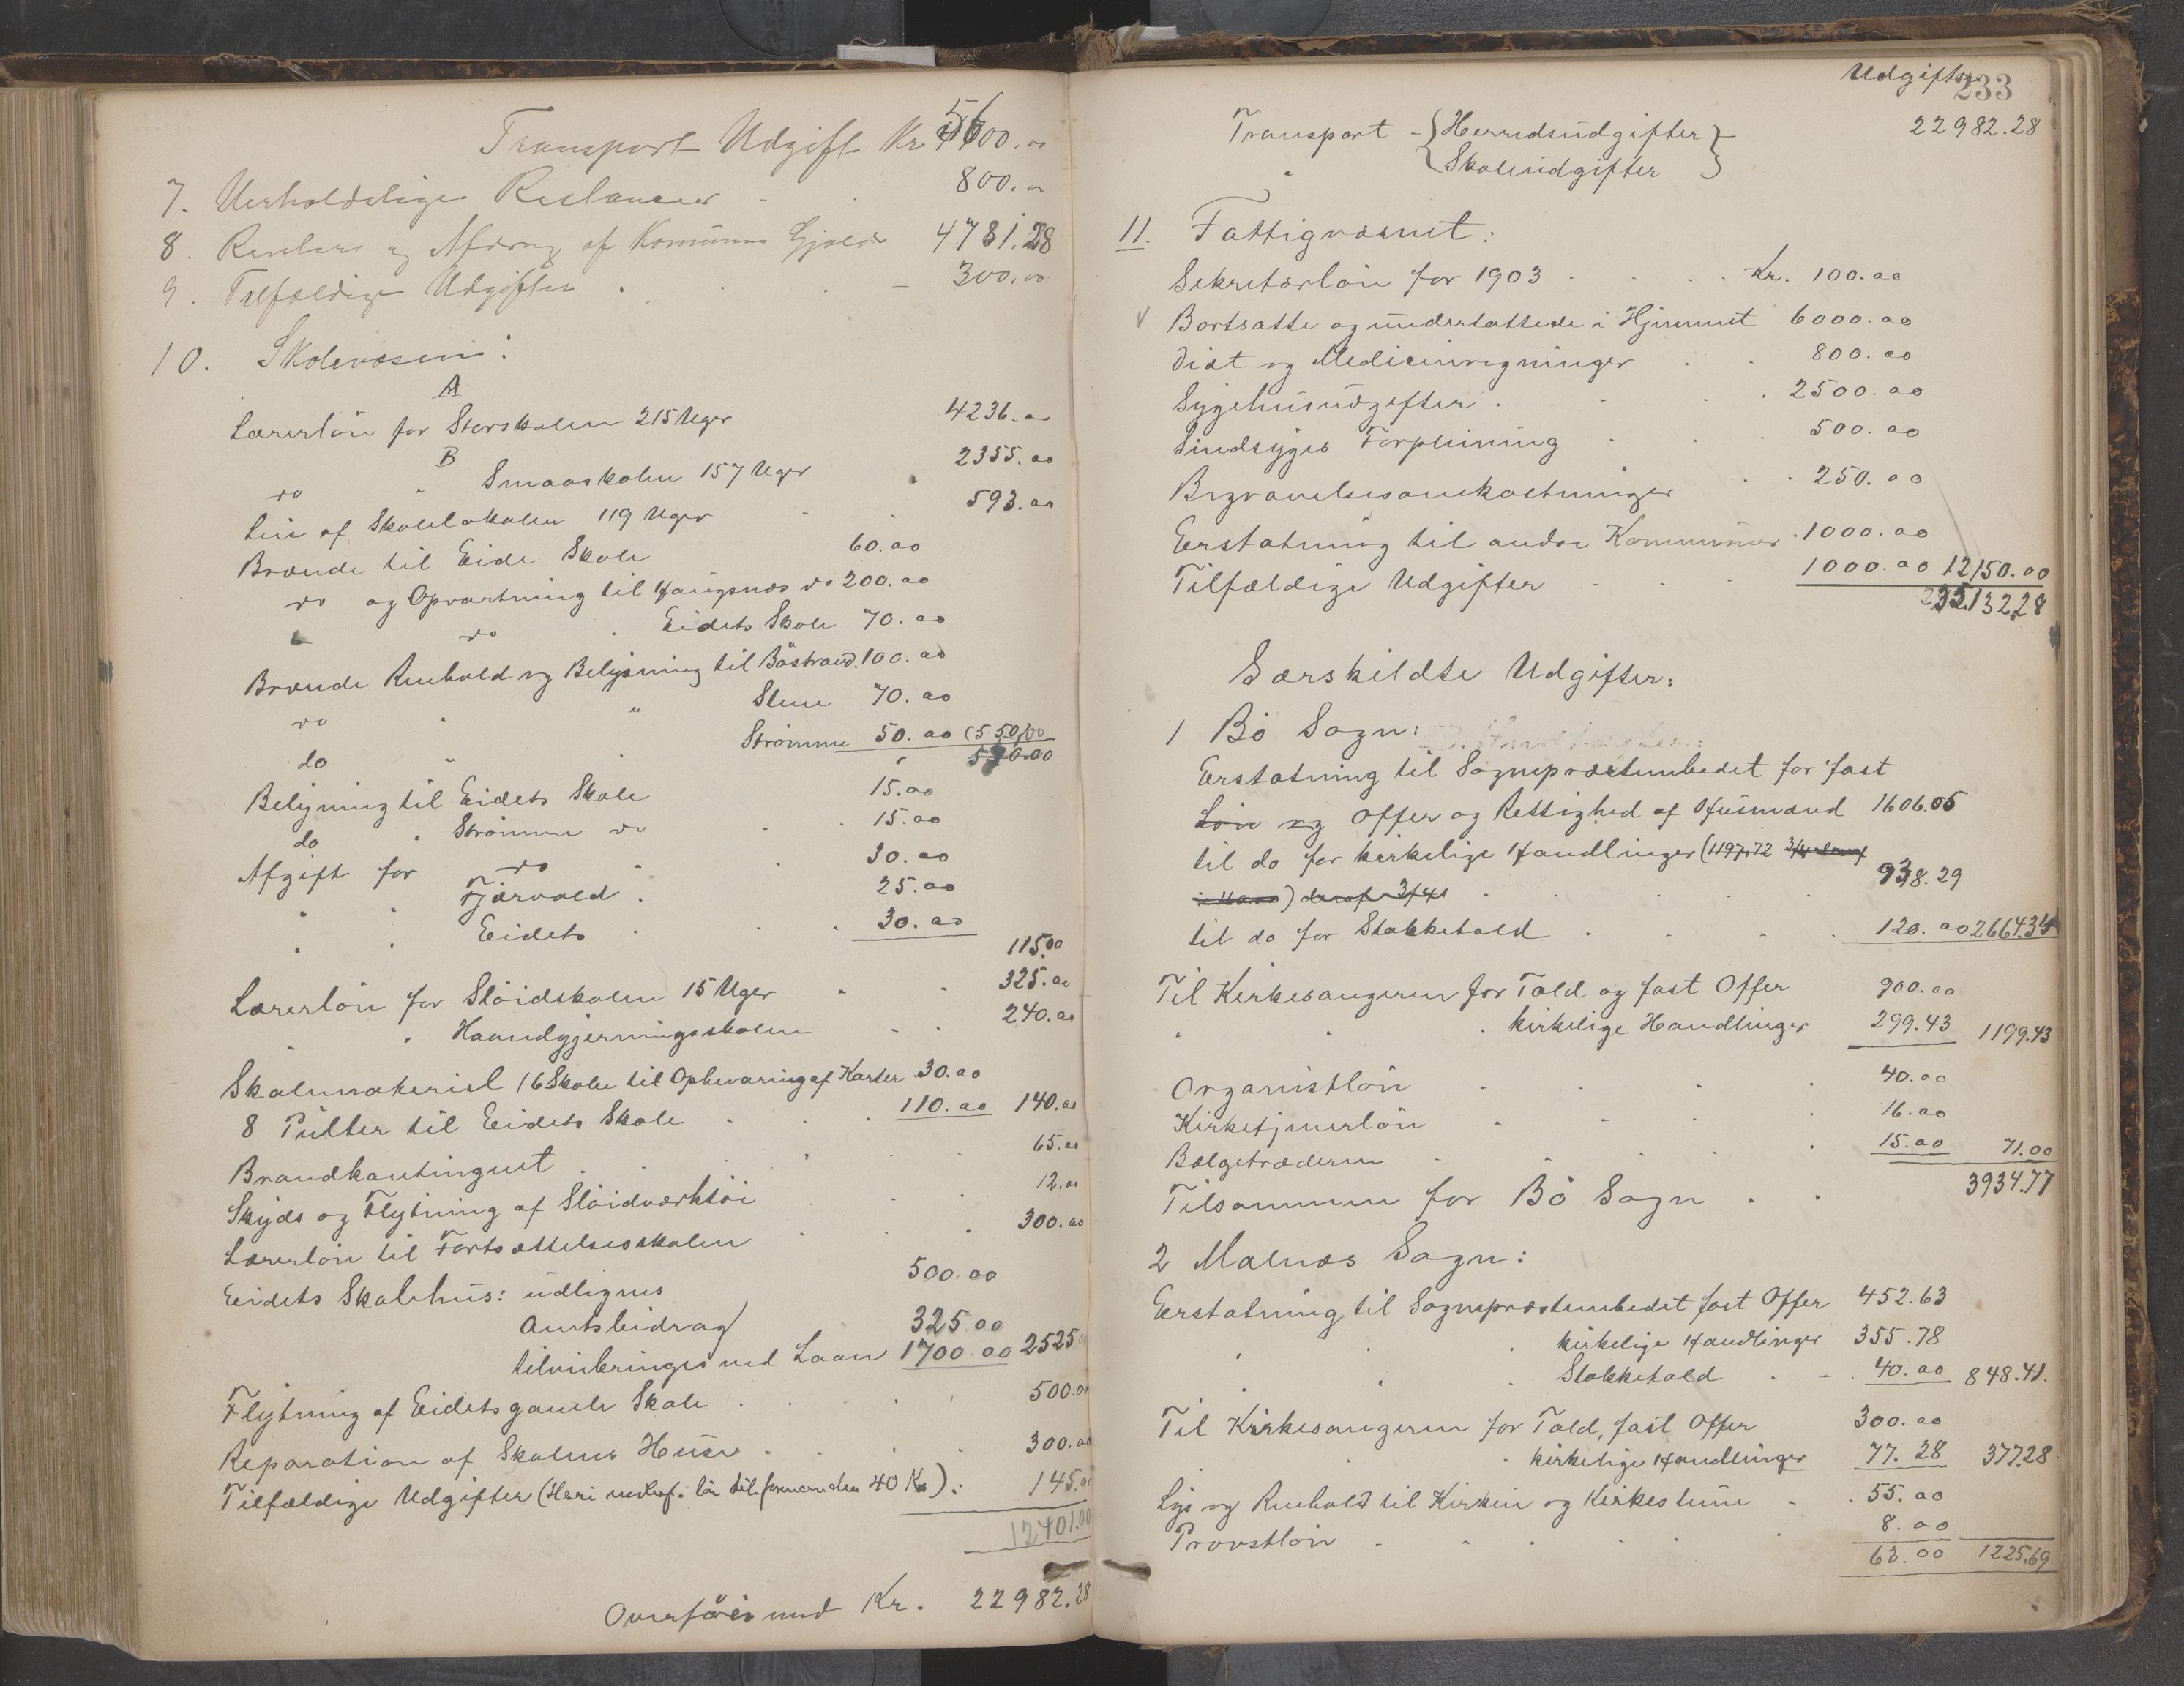 Transport Udgift Kr 5600.00
7. Uerholdelige Restancer 800.00
8. Renter og Afdrag af Kommunens Gjæld 4781.28
9. Tilfældige Udgifter 300.00
10. Skolevæsen:
A
Lærerløn for Storskolen 215 Uger 4236.00
B
do " Smaaskolen 157 Uger 2355.00
Leie af Skolelokaler 119 Uger 593.00
Brænde til Eide Skole 60.00
do og Opvartning til Haugsnæs do 200.00
" do Eidets Skole 70.00
Brænde Renhold og Belysning til Bøstrand. 100.00
do " " Stene 70.00
do " " Strømme 50.00 (550,00
550.00
Belysning til Eidets Skole 15.00
do " Strømme do 15.00
Afgift for do 30.00
" " Fjærvold 25.00
" " Eidets 30.00
115.00
Lærerløn for Sløidskolen 15 Uger 325.00
" " Haandgjerningsskolen 240.00
Skolemateriel (6 Skabe til Opbevaring af Karter 30.00
8 Pulter til Eidets Skole 110.00 140.00
Brandkontingent 65.00
Skyds og Flytning af Sløidværktøi 12.00
Lærerløn til Fortsættelsesskolen 300.00
Eidets Skolehus: udlignes 500.00
Amtsbidrag 325.00
tilveiebringes ved Laan 1700.00 2525
Flytning af Eidets gamle Skole 500.00
Reparation af Skolens Huse 300.00
Tilfældige Udgifter (Heri løn til formanden 40 Kr): 145.00
12401.00
Overføres med Kr. 22982.28
Udgifter
233
Transport - {Herredsudgifter} 22982.28
" {Skoleudgifter}
11. Fattigvæsenet:
Sekretærløn for 1903 Kr. 100.00
Bortsatte og understøttede i Hjemmet 6000.00
Diæt og Medicinregninger 800.00
Sygehusudgifter 2500.00
Sindsyges Forpleining 500.00
Begravelsesomkostninger 250.00
Erstatning til andre Kommuner 1000.00
Tilfældige Udgifter 1000.00 12150.00
35132.28
Særskildte Udgifter:
1 Bø Sogn:
Erstatning til Sognepræstembedet for fast
Løn og Offer og Rettighed af Husmænd 1606.05
til do for kirkelige Handlinger (1197.72 3/4
) deraf 3/4 938.29
til do for Stokketold 120.00 2664.34
Til Kirkesangeren for Told og fast Offer 900.00
" " " kirkelige Handlinger 299.43 1199.43
Organistløn 40.00
Kirketjenerløn 16.00
Bælgetræderen 15.00 71.00
Tilsammen for Bø Sogn 3934.77
2 Malnæs Sogn:
Erstatning til Sognepræstembedet fast Offer 452.63
" " kirkelige Handlinger 355.78
" " " Stokketold 40.00 848.41.
Til Kirkesangeren for Told, fast Offer 300.00
" " kirkelige Handlinger 77.28 377.28
Lys og Renhold til Kirken og Kirkestuen 55.00
Provstløn 8.00
63.00 1225.69